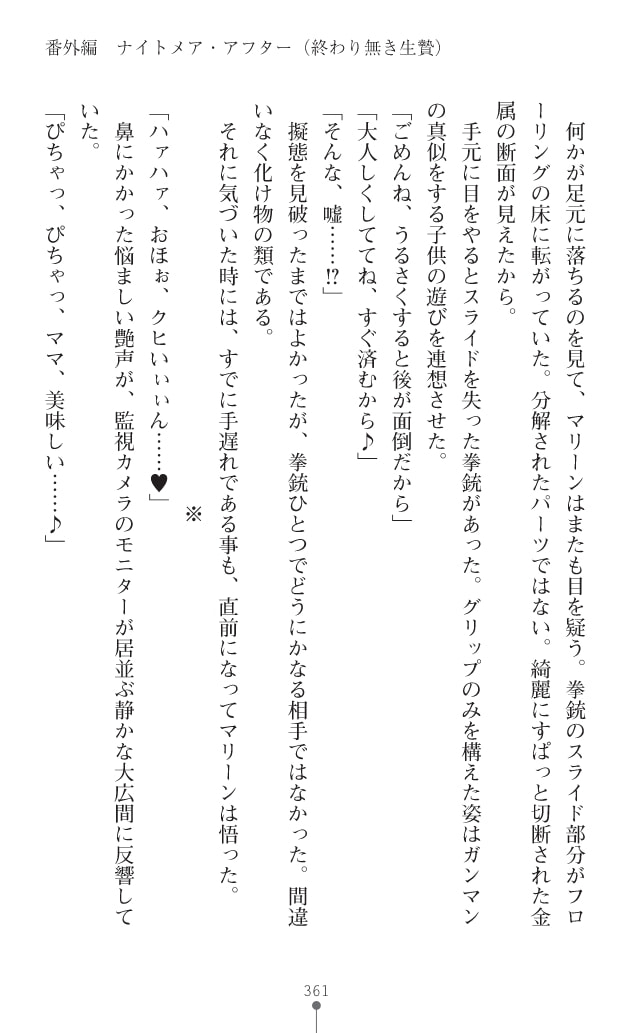 番外編　ナイトメア・アフター（終わり無き生贄）
　何かが足元に落ちるのを見て、マリーンはまたも目を疑う。拳銃のスライド部分がフロ
ーリングの床に転がっていた。分解されたパーツではない。綺麗にすぱっと切断された金
属の断面が見えたから。
　手元に目をやるとスライドを失った拳銃があった。グリップのみを構えた姿はガンマン
の真似をする子供の遊びを連想させた。
「ごめんね、うるさくすると後が面倒だから」
「大人しくしててね、すぐ済むから♪」
「そんな、嘘……!?」
　擬態を見破ったまではよかったが、拳銃ひとつでどうにかなる相手ではなかった。間違
いなく化け物の類である。
　それに気づいた時には、すでに手遅れである事も、直前になってマリーンは悟った。
※
「ハァハァ、おほぉ、クヒいぃぃん……♥」
　鼻にかかった悩ましい艶声が、監視カメラのモニターが居並ぶ静かな大広間に反響して
いた。
「ぴちゃっ、ぴちゃっ、ママ、美味しい……♪」
361